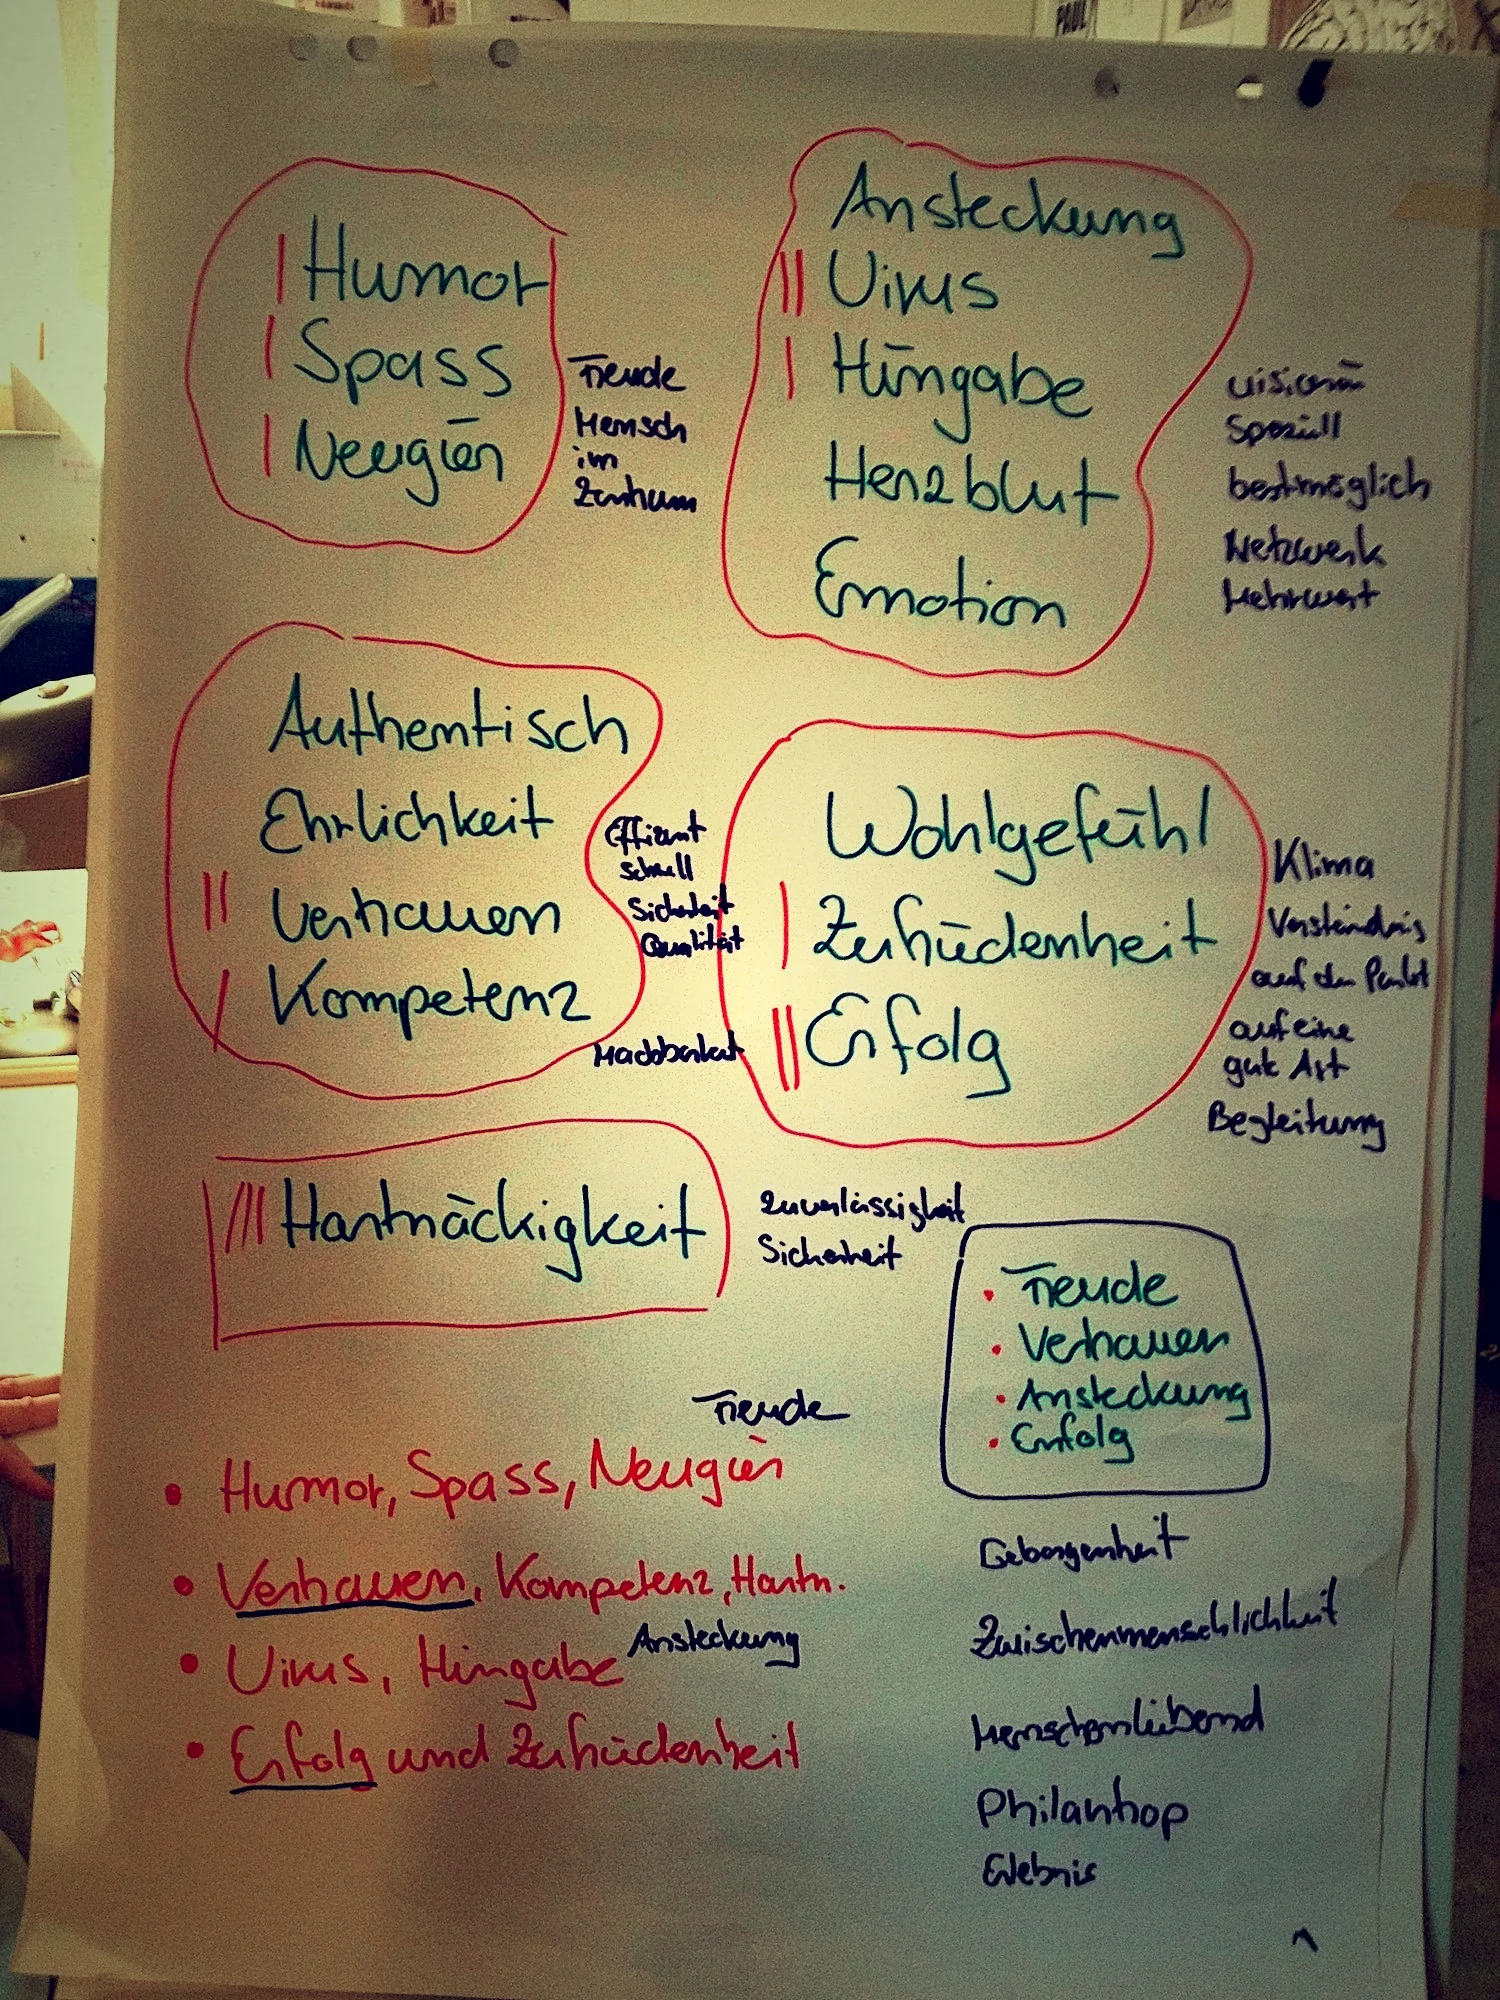 PAUL
Humor
Spass
Neugier
Freude
Mensch
im
Zentrum
Ansteckung
Virus
Hingabe
Herzblut
Emotion
visionär
Speziell
bestmöglich
Netzwerk
Mehrwert
Authentisch
Ehrlichkeit
Vertrauen
Kompetenz
Effizient
schnell
Sicherheit
Qualität
Machbarkeit
Wohlgefühl
Zufriedenheit
Erfolg
Klima
Verständnis
auf den Punkt
auf eine
gute Art
Begleitung
Hartnäckigkeit
Zuverlässigkeit
Sicherheit
• Freude
• Vertrauen
• Ansteckung
• Erfolg
Freude
• Humor, Spass, Neugier
• Vertrauen, Kompetenz, Hartn.
Ansteckung
• Virus, Hingabe
• Erfolg und Zufriedenheit
Geborgenheit
Zwischenmenschlichkeit
Menschenliebend
Philantrop
Erlebnis